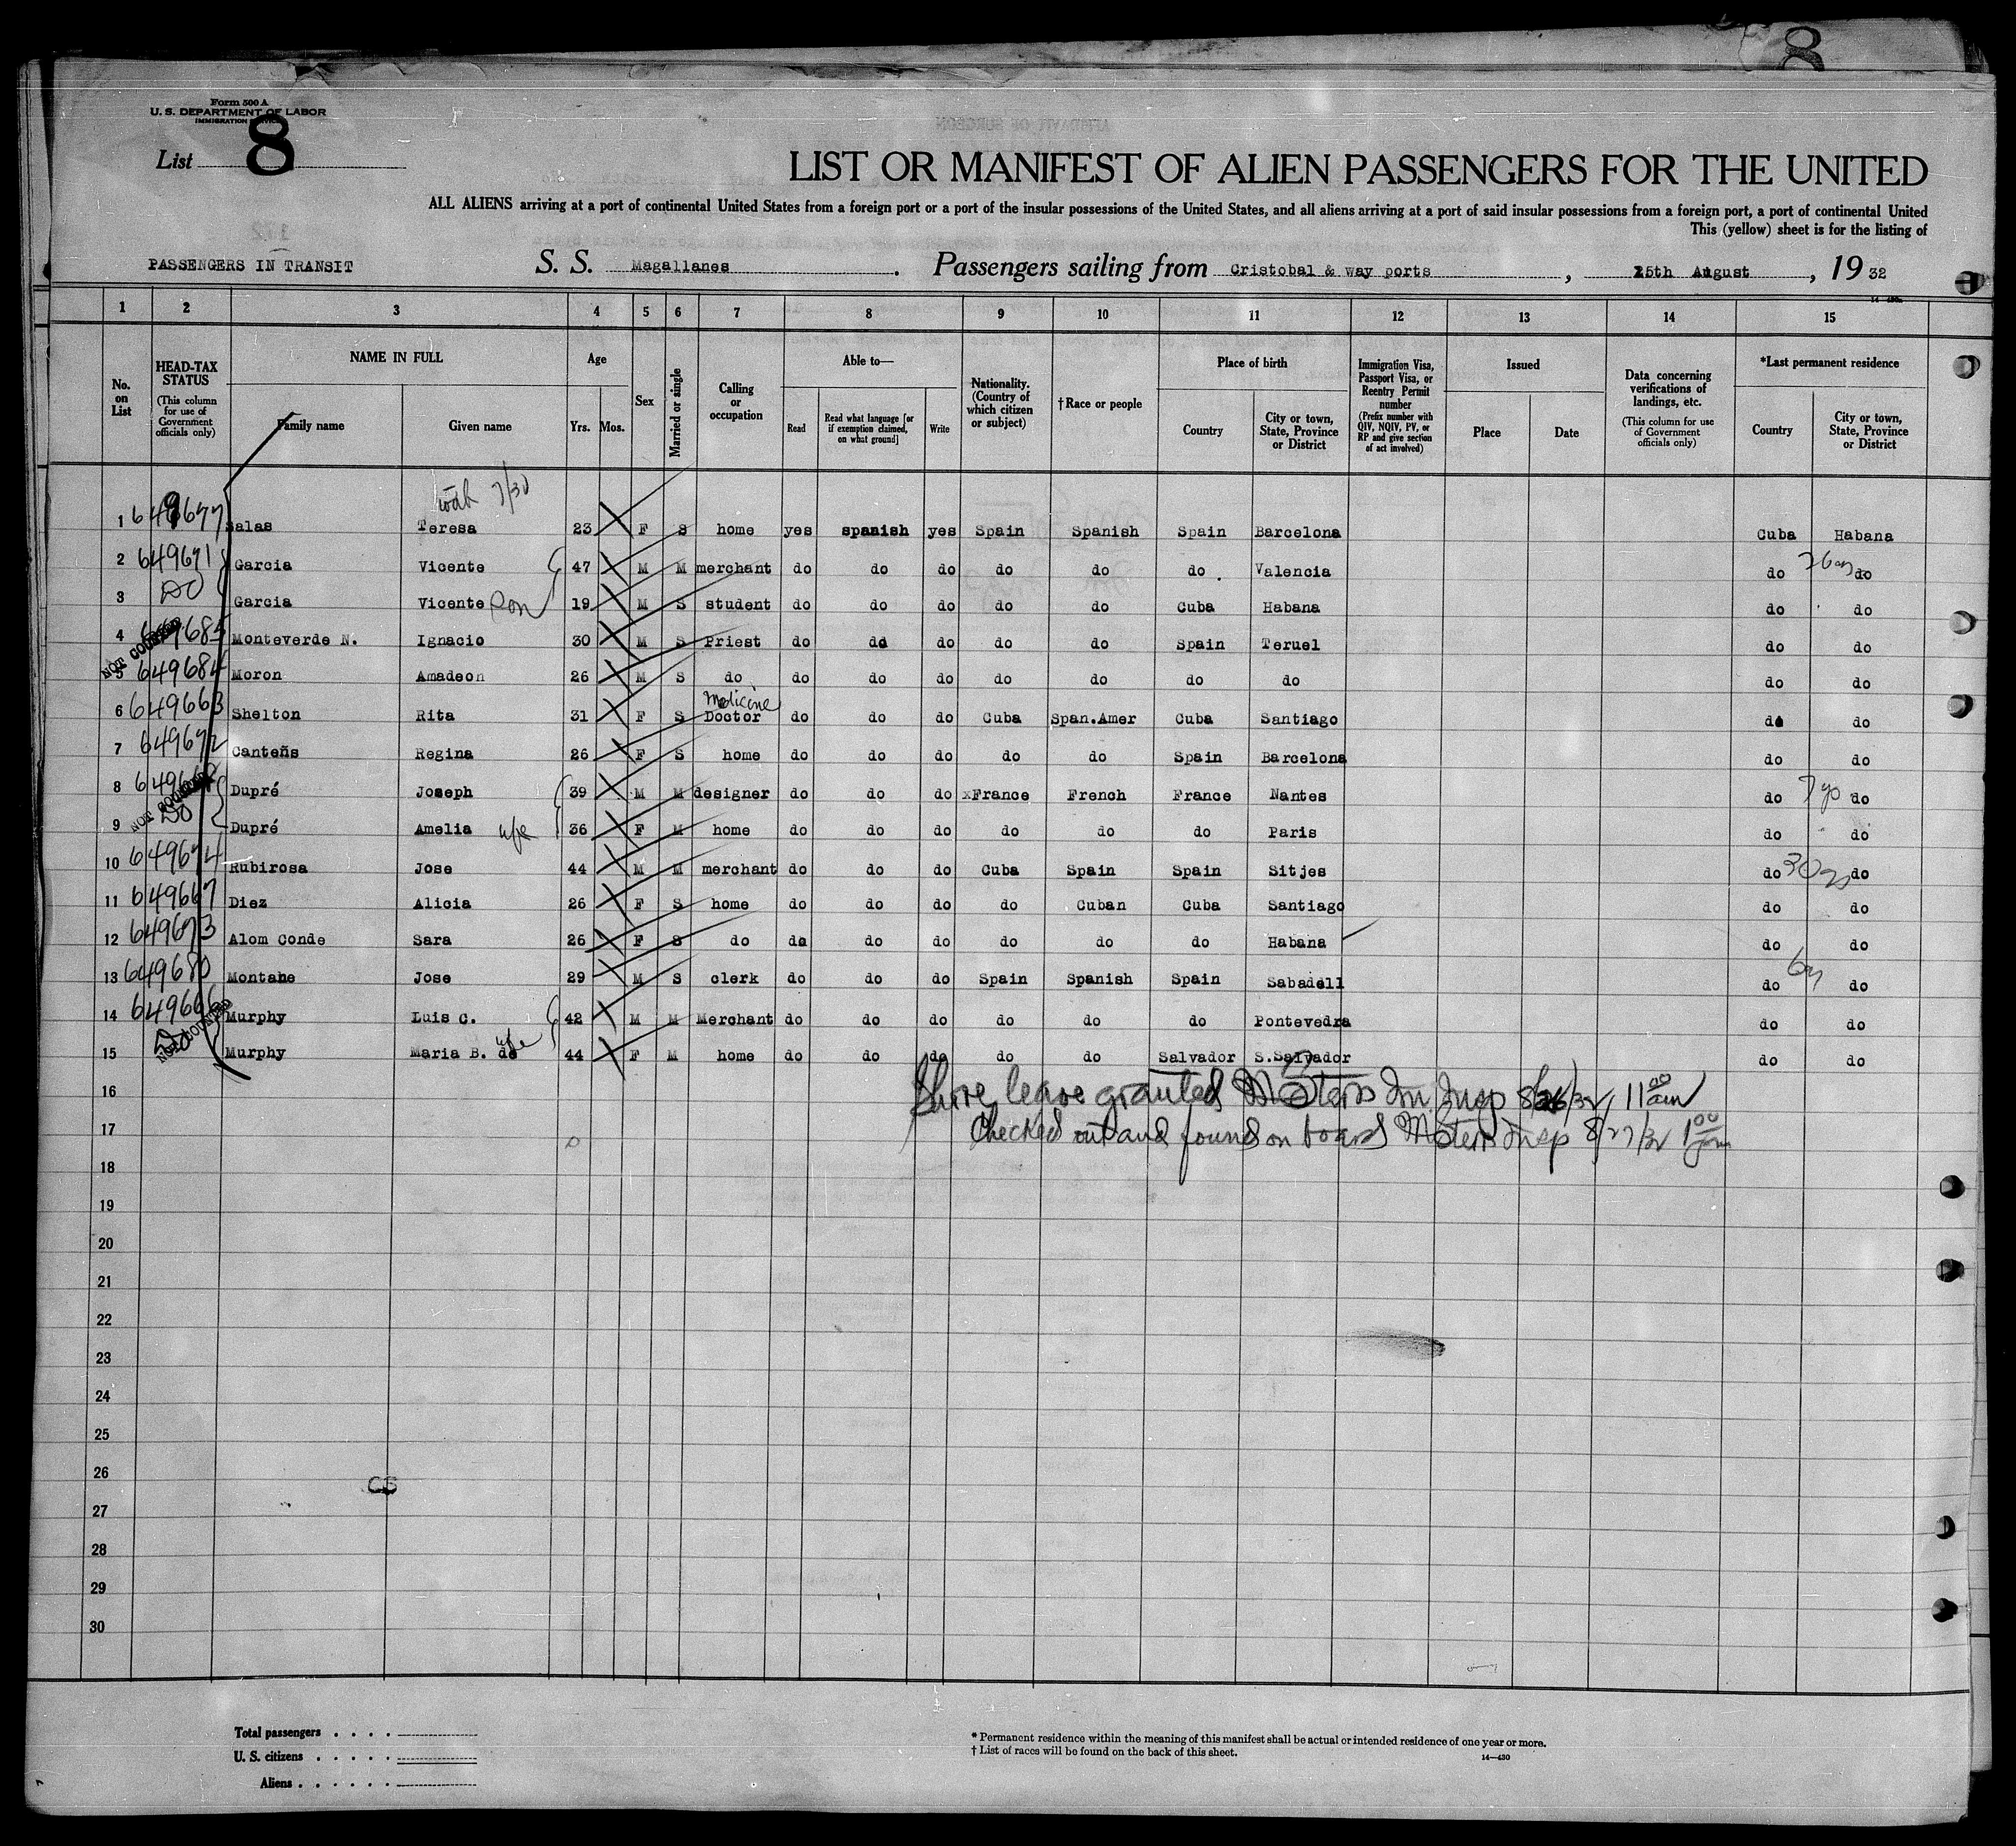 8
Form 500 A
U. S. DEPARTMENT OF LABOR
IMMIGRATION SERVICE
List 8
LIST OR MANIFEST OF ALIEN PASSENGERS FOR THE UNITED
ALL ALIENS arriving at a port of continental United States from a foreign port or a port of the insular possessions of the United States, and all aliens arriving at a port of said insular possessions from a foreign port, a port of continental United
This (yellow) sheet is for the listing of
PASSENGERS IN TRANSIT S. S. Magallanes . Passengers sailing from Cristobal & way ports , 25th August , 19 32
1 2 3 4 5 6 7 8 9 10 11 12 13 14 15
No. on List
HEAD-TAX STATUS (This column for use of Government officials only)
NAME IN FULL Family name Given name
Age Yrs. Mos.
Sex
Married or single
Calling or occupation
Able to— Read Read what language [or if exemption claimed, on what ground] Write
Nationality. (Country of which citizen or subject)
†Race or people
Place of birth Country City or town, State, Province or District
Immigration Visa, Passport Visa, or Reentry Permit number (Prefix number with QIV, NQIV, PV, or RP and give section of act involved)
Issued Place Date
Data concerning verifications of landings, etc. (This column for use of Government officials only)
*Last permanent residence Country City or town, State, Province or District
1 649677 Salas Teresa 23 F S home yes spanish yes Spain Spanish Spain Barcelona Cuba Habana
2 649671 Garcia Vicente 47 M M merchant do do do do do do Valencia do do
3 DO Garcia Vicente Son 19 M S student do do do do do Cuba Habana do do
4 649685 Monteverde N. Ignacio 30 M S Priest do do do do do Spain Teruel do do
NOT COUNTED
5 649684 Moron Amadeon 26 M S do do do do do do do do do do
6 649663 Shelton Rita 31 F S Medicine Doctor do do do Cuba Span.Amer Cuba Santiago do do
7 649672 Canteñs Regina 26 F S home do do do do do Spain Barcelona do do
8 Dupré Joseph 39 M M designer do do do xFrance French France Nantes do 7 yo do
NOT COUNTED
9 Do Dupré Amelia wife 36 F M home do do do do do do Paris do do
10 649674 Rubirosa Jose 44 M M merchant do do do Cuba Spain Spain Sitjes do 30 ys do
11 649667 Diez Alicia 26 F S home do do do do Cuban Cuba Santiago do do
12 649673 Alom Conde Sara 26 F S do do do do do do do Habana do do
13 649680 Montane Jose 29 M S clerk do do do Spain Spanish Spain Sabadell do 6y do
14 649666 Murphy Luis C. 42 M M Merchant do do do do do do Pontevedra do do
NOT COUNTED
15 Do Murphy Maria B. de wife 44 F M home do do do do do Salvador S.Salvador do do
16 Shore leave granted Imm Insp 8/26/32, 11 00 am
17 Checked out and found on board Insp 8/27/32 1 00 pm
18
19
20
21
22
23
24
25
26
CB
27
28
29
30
Total passengers . . . .
U. S. citizens . . . . .
Aliens . . . . . .
* Permanent residence within the meaning of this manifest shall be actual or intended residence of one year or more.
† List of races will be found on the back of this sheet.
14—430